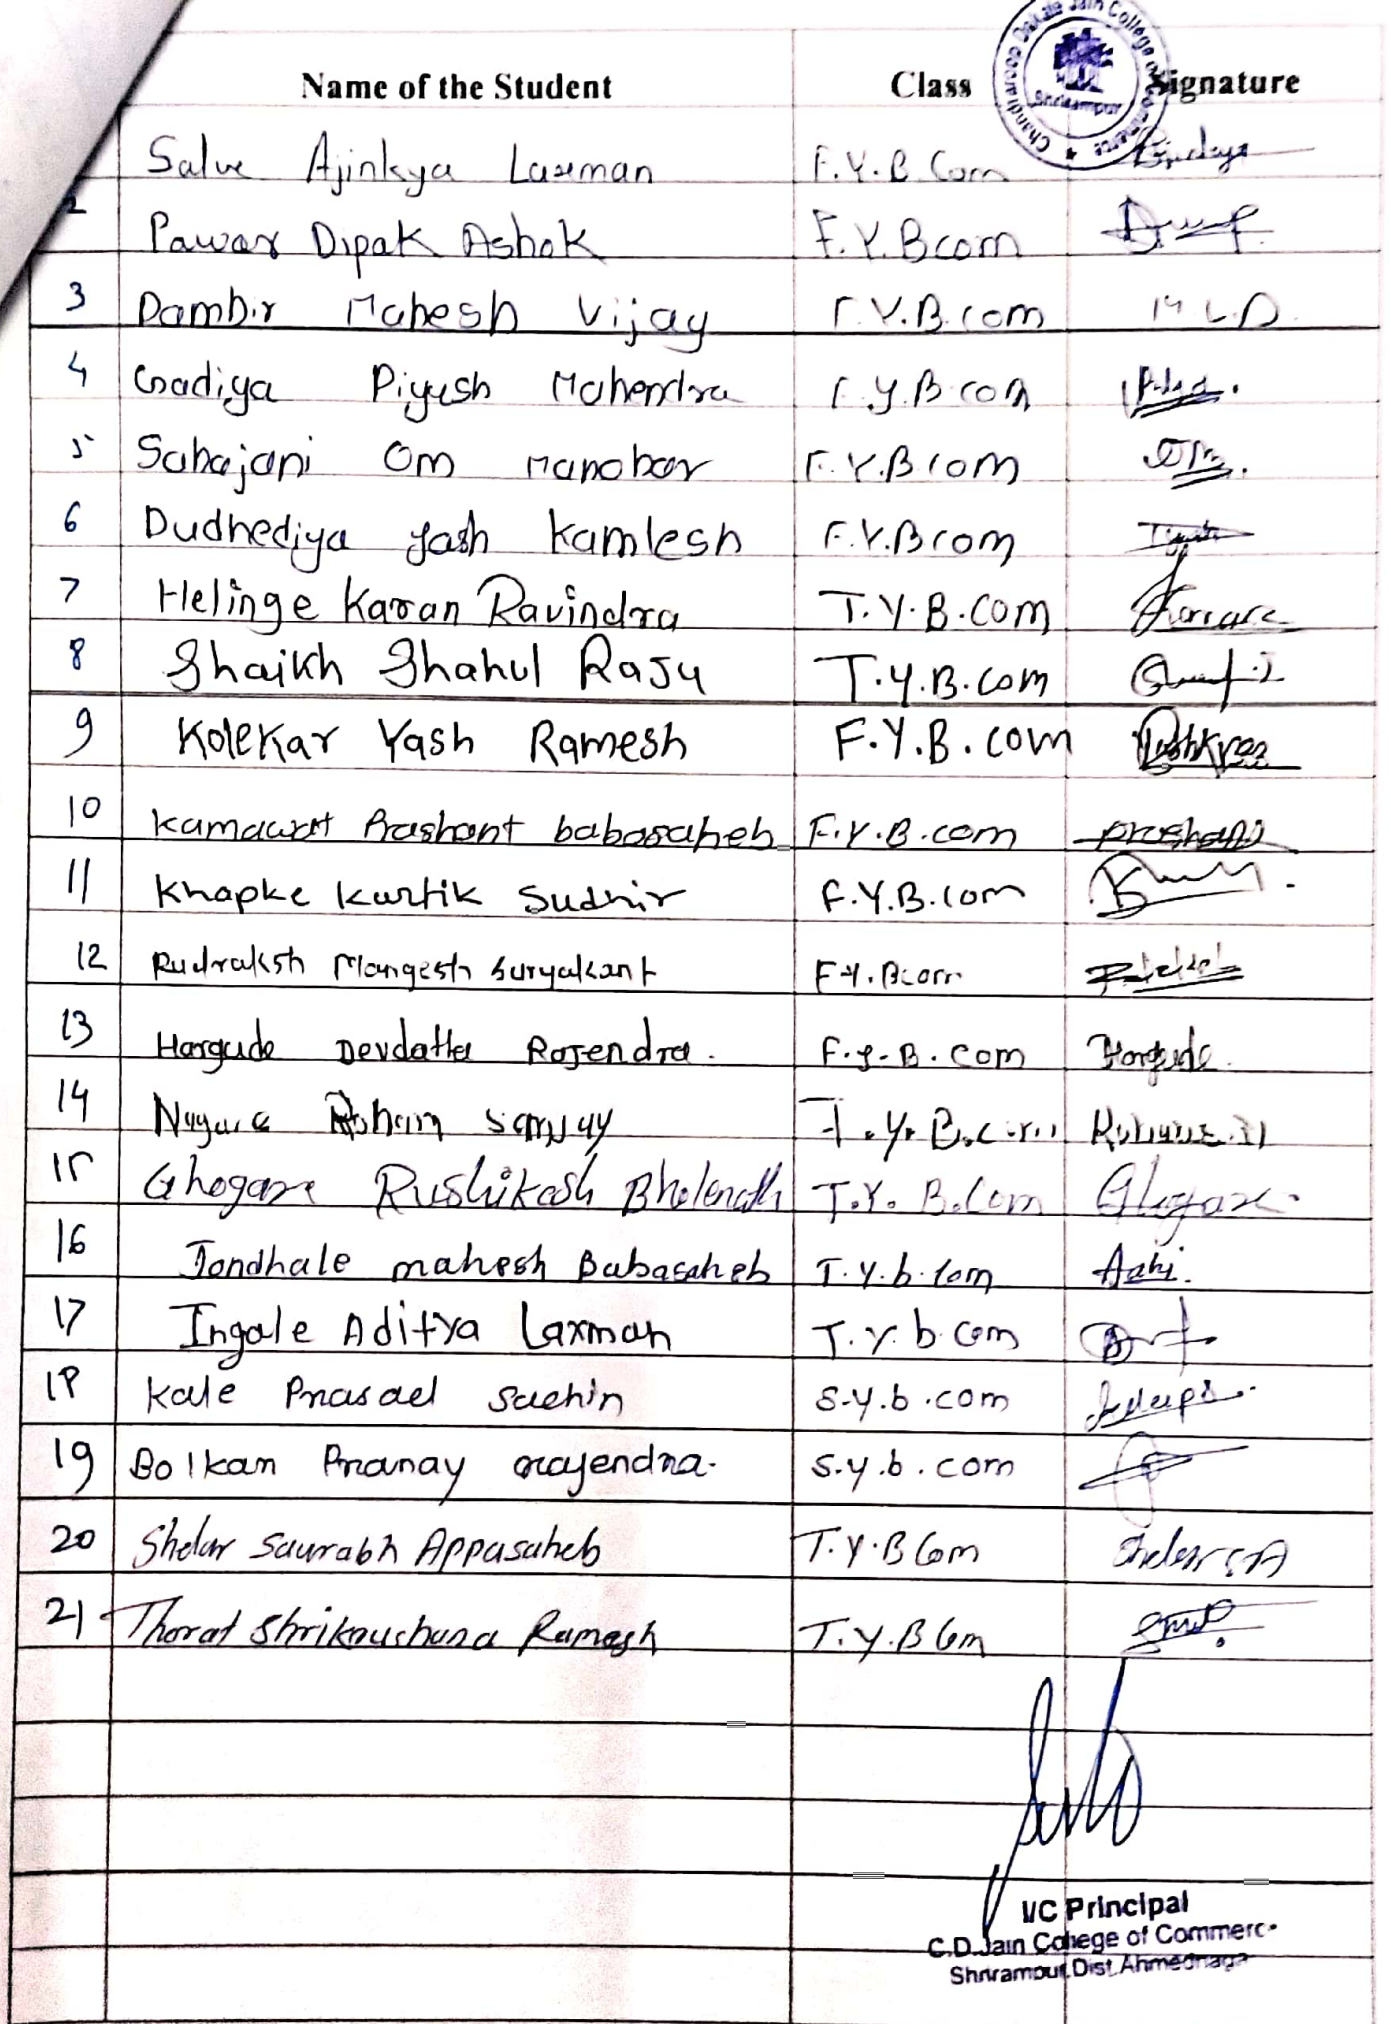 Name of the Student Class Signature
Chandraroop Dakale Jain College of Commerce
Shrirampur
Salve Ajinkya Laxman F.Y.B.Com
2 Pawar Dipak Ashok F.Y.Bcom
3 Dambir Mahesh Vijay F.Y.B.com M.L.D.
4 Gadiya Piyush Mahendra F.Y.B com
5 Sahajani Om Manohar F.Y.B com Om
6 Dudhediya Yash Kamlesh F.Y.B com
7 Helinge Karan Ravindra T.Y.B.COM
8 Shaikh Shahul Raju T.Y.B.com
9 Kolekar Yash Ramesh F.Y.B.com
10 Kamawat Prashant babasaheb F.Y.B.com Prashant
11 Khapke Kartik Sudhir F.Y.B.com
12 Rudraksh Mangesh Suryakant F.Y.Bcom
13 Hargude Devdatta Rajendra. F.Y.B.com Hargude.
14 Rohan Sanjay F.Y.B.com
15 Ghogare Rushikesh Bholenath T.Y.B.Com Ghogare
16 Jondhale mahesh Babasaheb T.Y.b.com
17 Ingale Aditya Laxman T.Y.b.com
18 Kale Prasad Sachin S.y.b.com
19 Bolkar Pranay rajendra. S.y.b.com
20 Shelar Saurabh Appasaheb T.Y.BCom Shelar S A
21 Thorat Shrikrushna Ramesh T.Y.BCom
I/C Principal
C.D.Jain College of Commerce
Shrirampur, Dist. Ahmednagar